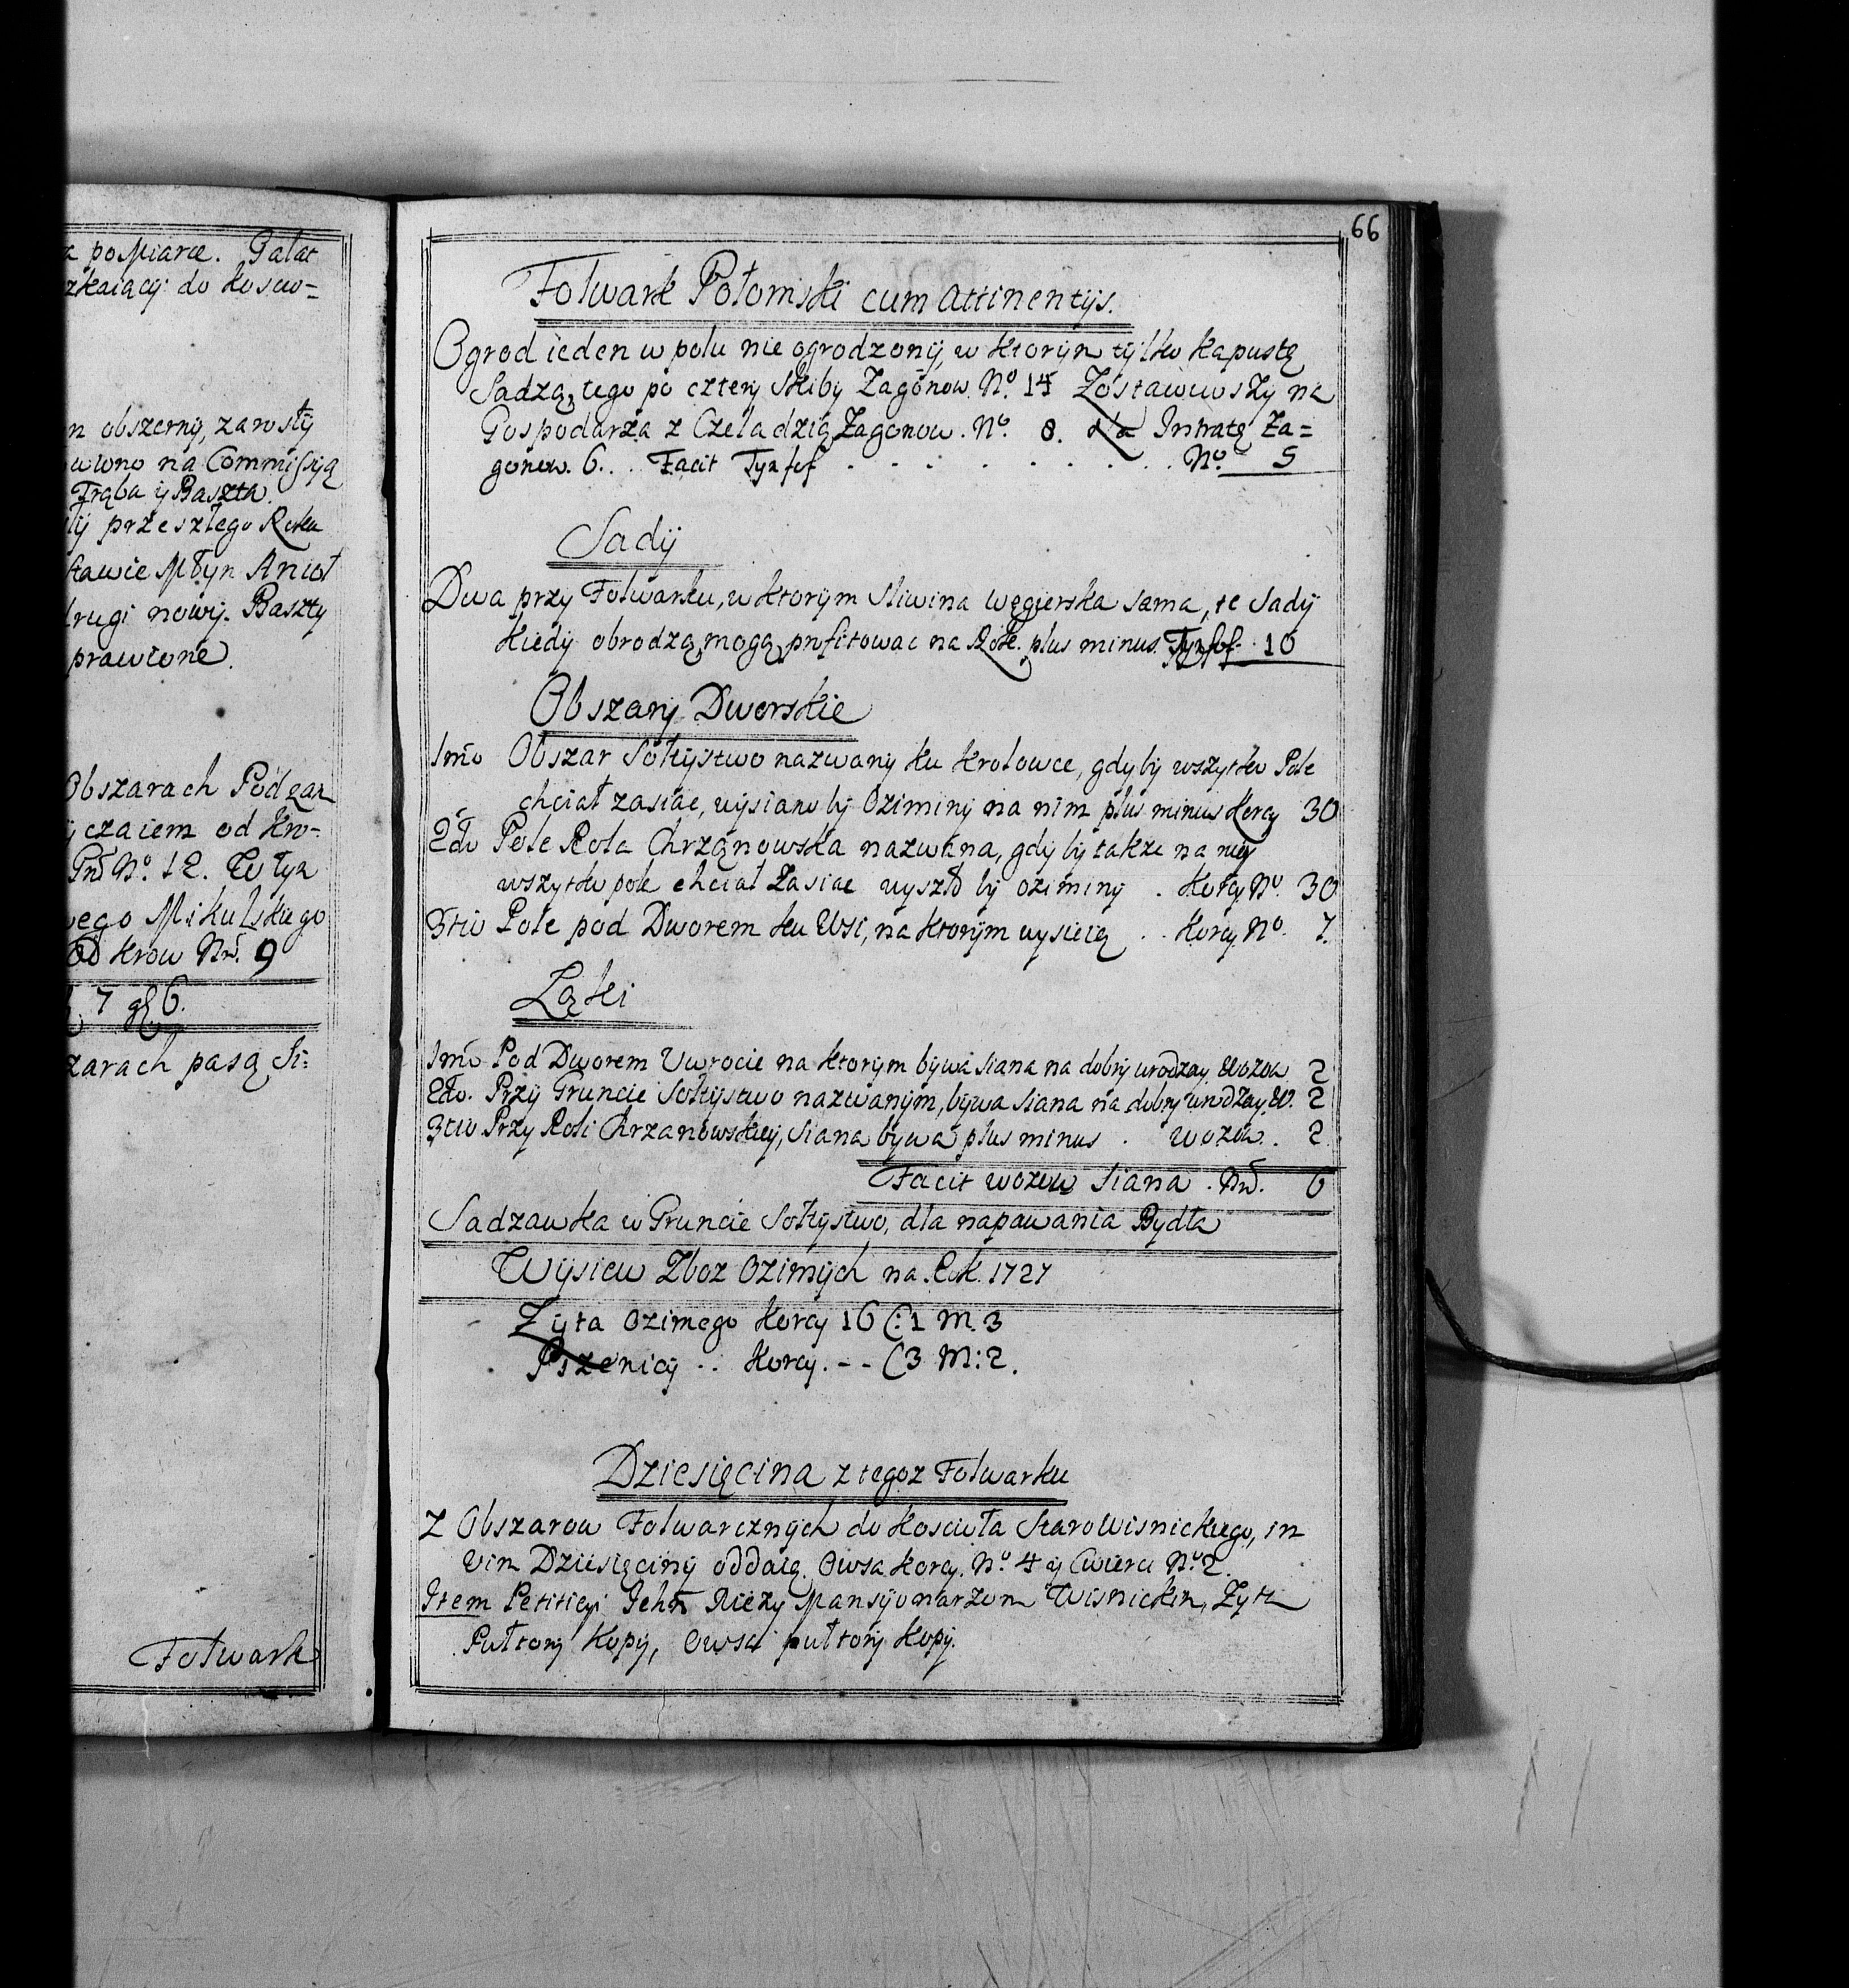 a pomiarce. Galat
zkaiący do koscio=
n obszerny, zarosły
wiono na Commissyą
Trąba y Baszta.
ły przeszłego Roku
stawie Młyn Anioł
drugi nowy. Baszty
prawione.
Obszarach Podgar
yczaiem od Kro=
No. 12. W tym
wego Mikulskiego
Od krow Nro. 9
7 g 6.
zarach pasą Si=
Folwark
66
Folwark Połomski cum Attinentijs.
Ogrod ieden w polu nie ogrodzony, w ktorym tylko kapustę
Sadzą, tego po cztery Skiby Zagonow No. 14 Zostawiwszy na
Gospodarza z Czeladzią Zagonow. No. 8. Na Intratę Za=
gonow. 6. . Facit Tynfof . . . . . . . . . No. 5
Sady
Dwa przy Folwarku, w ktorym sliwina węgierska sama, te Sady
kiedy obrodzą, mogą profitowac na Rok. plus minus. Tynfof. 10
Obszary Dworskie
1mo Obszar Sołtystwo nazwany ku Krolowce, gdyby wszytko Pole
chciał zasiac, wysiano by Oziminy na nim plus minus Korcy 30
2do Pole Rola Chrząnowska nazwana, gdy by takze na niey
wszytko pole chciał Zasiac wyszło by oziminy . Korcy No. 30
3tio Pole pod Dworem ku Wsi, na ktorym wysieią . . Korcy No. 7.
Łąki
1mo Pod Dworem Uwrocie na ktorym bywa siana na dobry urodzay. Wozow 2
2do. Przy Gruncie Sołtystwo nazwanym, bywa siana na dobry urodzay. W. 2
3tio Przy Roli Chrzanowskiey, siana bywa plus minus . wozow. . 2.
Facit wozow Siana . Nro. 6
Sadzawka w Gruncie Sołtystwo, dla napawania Bydła
Wysiew Zboz Ozimych na Rok. 1727
Zyta Ozimego Korcy 16 C: 1 M. 3
Pszenicy .. Korcy. - - C 3 M: 2.
Dziesięcina z tegoz Folwarku
Z Obszarow Folwarcznych do Koscioła Staro Wisnickiego, in
vim Dziesięciny oddaią. Owsa Korcy. No. 4 y Cwierci No. 2.
Item Petiticyi Ichm Xięzy Mansyonarzom Wisnickim, Zyta
Pułtory Kopy, Owsa pułtory Kopy.